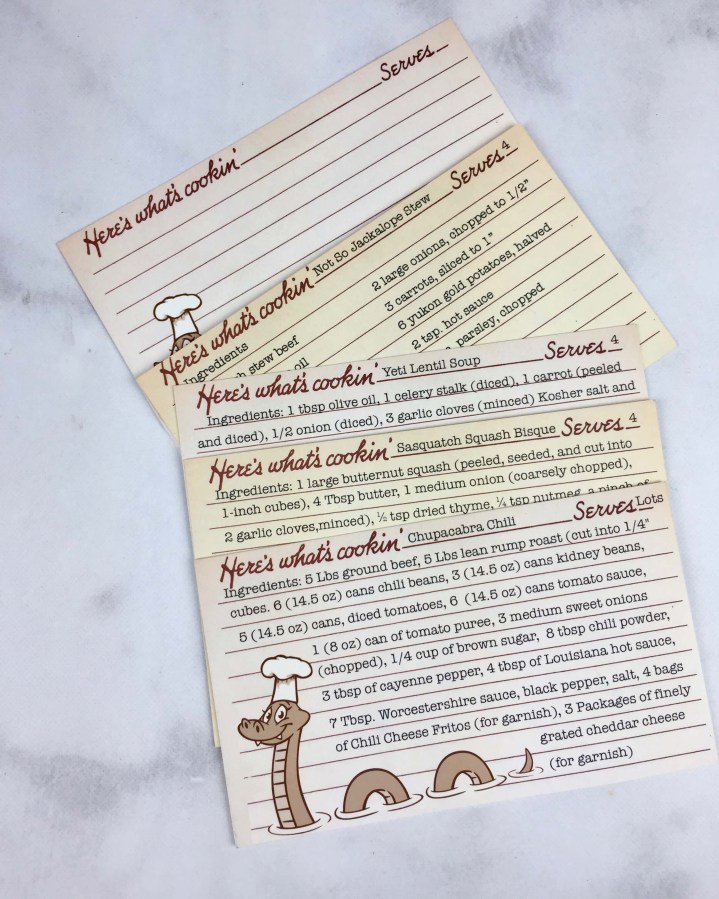 Here's what's cookin' Serves
Here's what's cookin' Not So Jackalope Stew Serves 4
Ingredients
stew beef
oil
2 large onions, chopped to 1/2"
3 carrots, sliced to 1"
6 yukon gold potatoes, halved
2 tsp. hot sauce
parsley, chopped
Here's what's cookin' Yeti Lentil Soup Serves 4
Ingredients: 1 tbsp olive oil, 1 celery stalk (diced), 1 carrot (peeled
and diced), 1/2 onion (diced), 3 garlic cloves (minced) Kosher salt and
Here's what's cookin' Sasquatch Squash Bisque Serves 4
Ingredients: 1 large butternut squash (peeled, seeded, and cut into
1-inch cubes), 4 Tbsp butter, 1 medium onion (coarsely chopped),
2 garlic cloves,minced), ½ tsp dried thyme, ¼ tsp nutmeg, a pinch of
Here's what's cookin' Chupacabra Chili Serves Lots
Ingredients: 5 Lbs ground beef, 5 Lbs lean rump roast (cut into 1/4"
cubes. 6 (14.5 oz) cans chili beans, 3 (14.5 oz) cans kidney beans,
5 (14.5 oz) cans, diced tomatoes, 6 (14.5 oz) cans tomato sauce,
1 (8 oz) can of tomato puree, 3 medium sweet onions
(chopped), 1/4 cup of brown sugar, 8 tbsp chili powder,
3 tbsp of cayenne pepper, 4 tbsp of Louisiana hot sauce,
7 Tbsp. Worcestershire sauce, black pepper, salt, 4 bags
of Chili Cheese Fritos (for garnish), 3 Packages of finely
grated cheddar cheese
(for garnish)